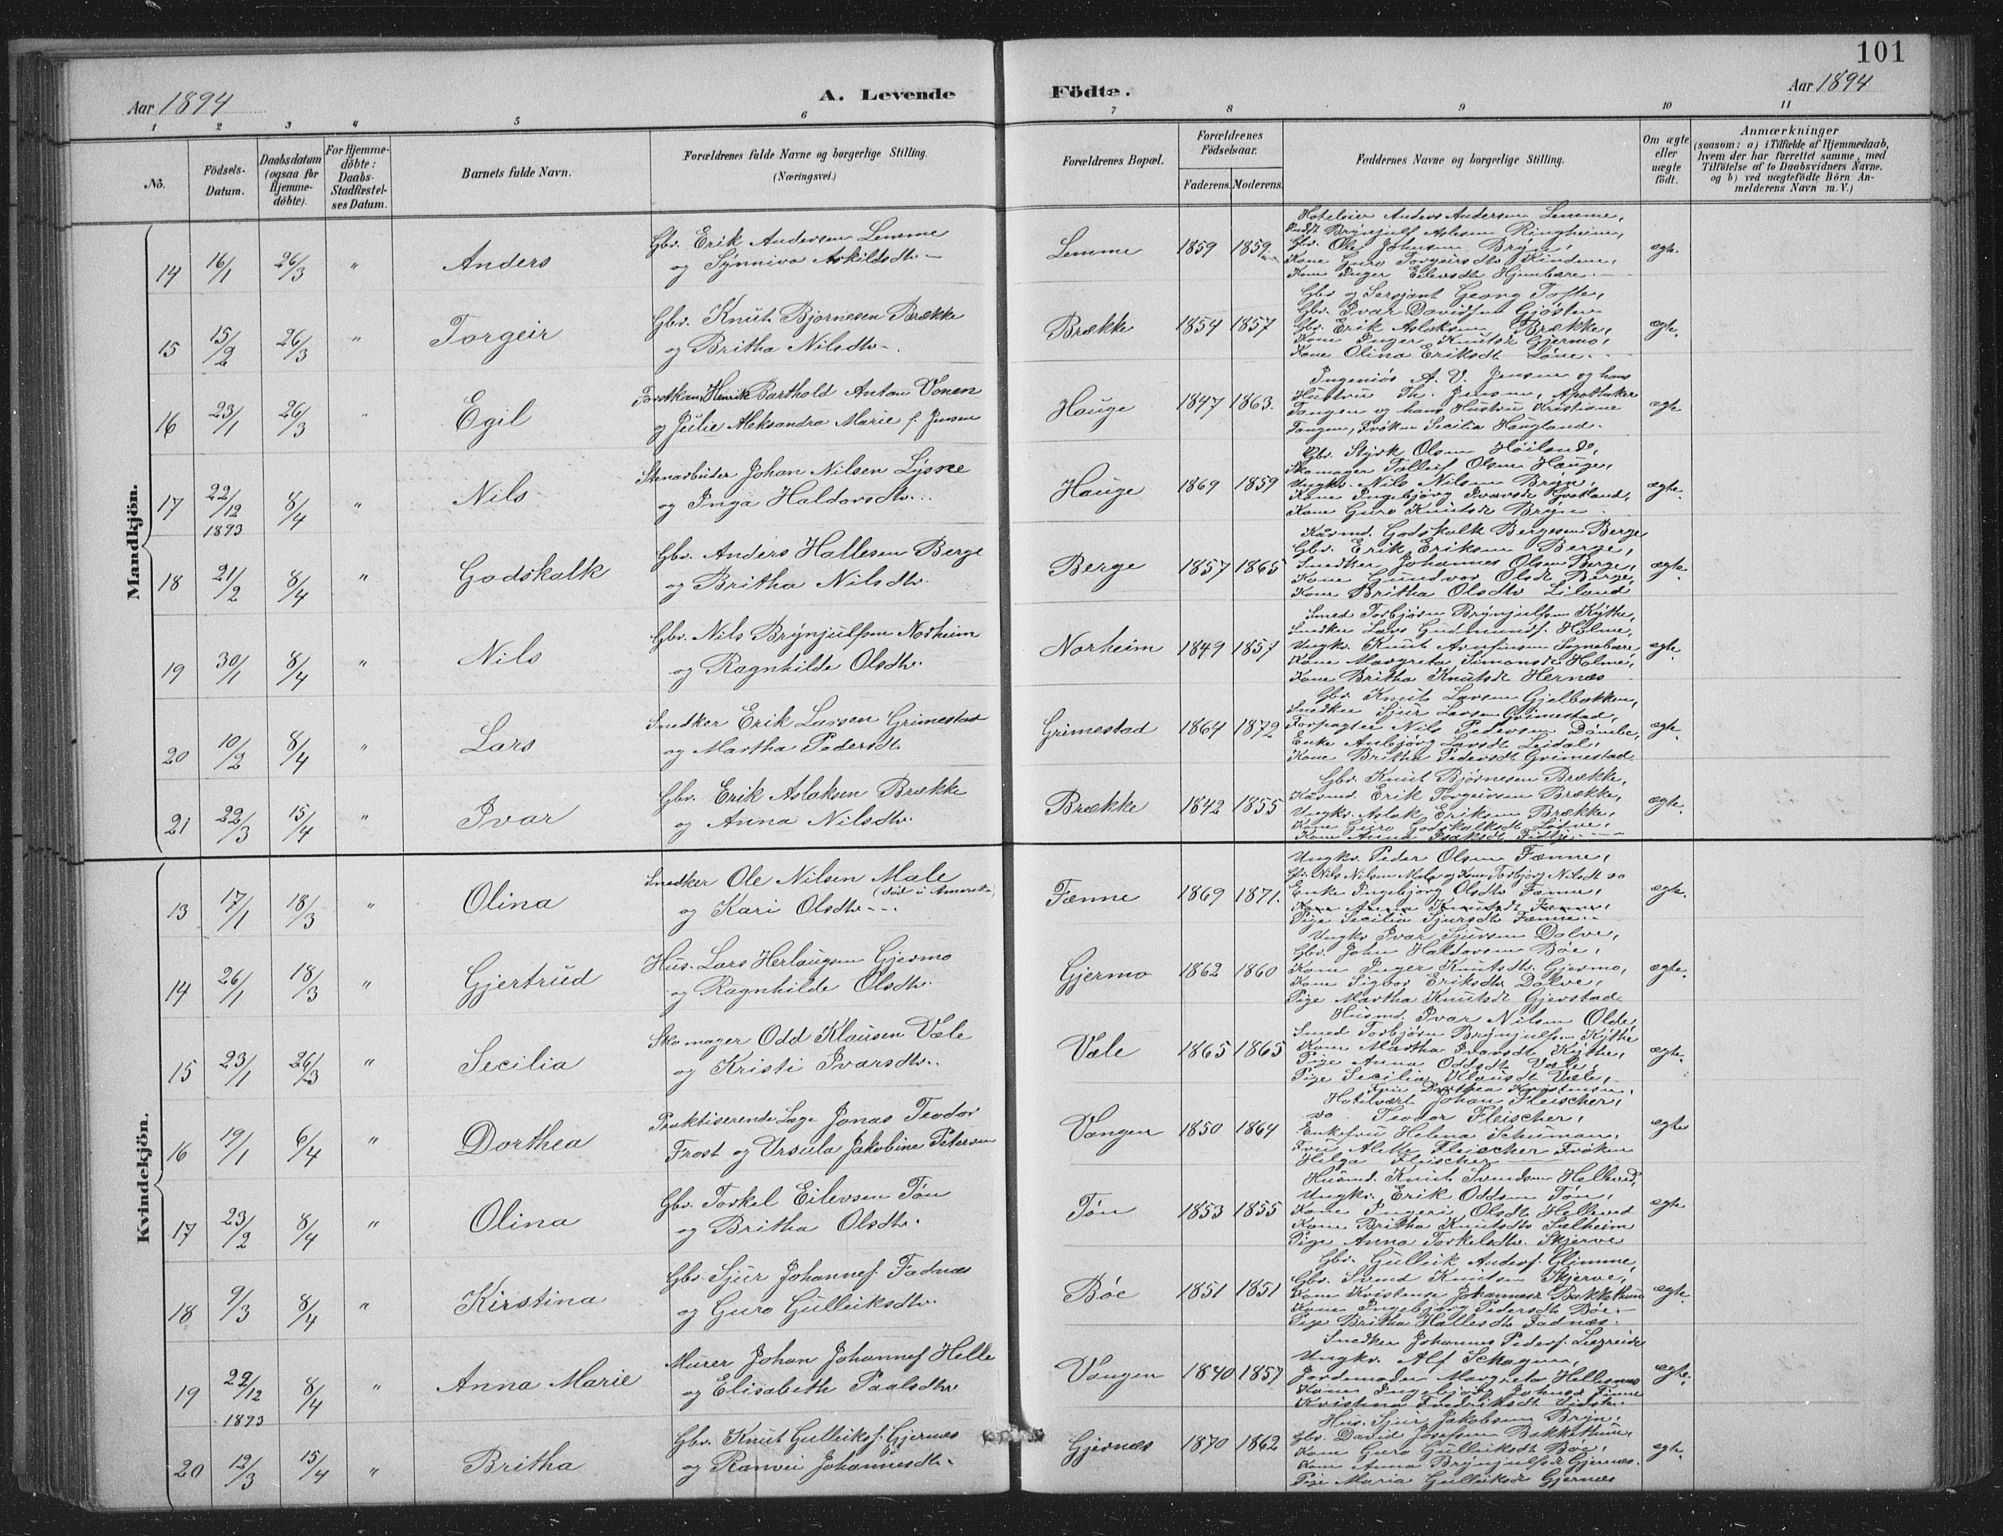 101
Aar 1894
A. Levende
Födte.
Aar 1894
1 2 3 4 5 6 7 8 9 10 11
No.
Födsels-Datum.
Daabsdatum (ogsaa for Hjemme-döbte).
For Hjemme-döbte: Daabs-Stadfæstel-ses Datum.
Barnets fulde Navn.
Forældrenes fulde Navne og borgerlige Stilling.
(Næringsvei.)
Forældrenes Bopæl.
Forældrenes Födselsaar.
Faderens. Moderens.
Faddernes Navne og borgerlige Stilling.
Om ægte eller uægte födt.
Anmærkninger
(saasom: a) i Tilfælde af Hjemmedaab, hvem der har forrettet samme, med Tilföielse af to Daabsvidners Navne. og b) ved uægtefödte Börn An-melderens Navn m. V.)
Mandkjön.
14 16/1 26/3 " Anders
Gbr. Erik Andersen Lemme
og Synniva Askildsdtr.
Lemme 1859 1859
Hoteleier Anders Andersen Lemme,
Brynjulf Aslesen Ringheim,
Gbr. Ole Johnsen Bryn,
Kone Guro Torgeirsdtr Kinden,
Kone Inger Eilevsdt
ægte.
15 15/2 26/3 " Torgeir
Gbr. Knut Bjornesen Brække
og Britha Nilsdtr.
Brække 1854 1857
Gbr og Sersjant Georg Tofte,
Gbr. Ivar Davidsen Gjøstein
Gbr. Erik Aslaksen Brække,
Kone Inger Knutsd Gjermo,
Kone Olina Eriksdt Løne.
ægte.
16 23/1 26/3 " Egil
Henrik Barthold Anton Vonen
og Julie Aleksandra Marie f. Jensen
Hauge 1847 1863.
Ingeniør A. V. Jensen og hans
Hustru Th. Jensen, Apotheker
Tangen og hans Hustru Kristiane
Tangen, Frøken Secilia Haugland.
ægte
17 22/12 1893 8/4 " Nils
Stenarbeider Johan Nilsen Lysne
og Inga Haldorsdtr.
Hauge 1869 1859
Gbr. Styrk Olsen Høiland,
Skomager Tolleif Olsen Hauge,
Ungkr. Nils Nilsen Bryn,
Kone Ingebjørg Ivarsdt
Kone Guro Knutsdt Bryn
ægte.
18 21/2 8/4 " Godskalk
Gbr. Anders Hallesen Berge
og Britha Nilsdtr.
Berge 1857 1865
Kårmd. Godskalk Bergesen Berge
Gbr. Erik Eriksen Berge,
Snedker Johannes Olsen Berge,
Kone Gundvor Olsdt Berge,
Kone Britha Olsdtr Liland
ægte.
19 30/1 8/4 " Nils
Gbr. Nils Brynjulfsen Norheim
og Ragnhilde Olsdtr.
Norheim 1849 1857
Smed Torbjørn Brynjulfsen Kythe,
Snedker Lars Gudmundsf. Holme,
Ungkr. Knut Arnfinsen
Kone Margreta Simonsdt Holme,
Kone Britha Knutsdt Hernæs
ægte.
20 10/2 8/4 " Lars
Snedker Erik Larsen Grimestad
og Martha Pedersdt
Grimestad 1864 1872
Gbr. Knut Larsen Gjelbakken,
Snedker Sjur Larsen Grimestad,
Forpagter Nils Pedersen
Enke Anbjørg Larsdt Leidal,
Kone Britha Pedersdt Grimestad
ægte.
21 22/3 15/4 " Ivar
Gbr. Erik Aslaksen Brække
og Anna Nilsdtr.
Brække 1842 1855
Gbr. Knut Bjørnesen Brække,
Kårmd. Erik Torgeirsen Brække,
Ungkr. Aslak Eriksen Brække,
Kone Guro Godskalksdt
Kone Anna Isaksdt
ægte.
Kvindekjön.
13 17/1 18/3 " Olina
Snedker Ole Nilsen Male
(død i Amerika)
og Kari Olsdtr.
Fænne 1869 1871.
Ungkr. Peder Olsen Fænne,
Gbr. Nils Nilsen Male og Kone Torbjørg Nilsdt do
Enke Ingebjørg Olsdtr Fænne,
Kone Anna Knutsdt Fænne,
Pige Secilia Sjursdt Fænne.
ægte.
14 26/1 18/3 " Gjertrud
Hus. Lars Herlaugsen Gjermo
og Ragnhilde Olsdtr.
Gjermo 1862 1860
Ungkr Ivar Sjursen Dolve,
Gbr. John Haldorsen Bøe,
Kone Inger Knutsdtr. Gjermo,
Kone Sigbor Eriksdtr Dolve,
Pige Martha Knutsd Gjerstad
ægte.
15 23/1 26/3 " Secilia
Skomager Odd Klausen Væle
og Kristi Ivarsdtr.
Væle 1865 1865
Husmd. Ivar Nilsen Olde,
Smed Torbjørn Brynjulfsen Kythe
Kone Martha Ivarsdt Kythe,
Pige Anna Oddsdt Væle,
Pige Secilia Klausdt Væle,
ægte.
16 19/1 6/4 " Dorthea
Praktiserende Læge Jonas Teodor
Frost og Ursula Jakobine Petersen
Vangen 1850 1864
Fru Dorthea Kristensen,
Hotelvært Johan Fleischer,
do Teodor Fleischer,
Enkefru Helena Schuman,
Fru Alette Fleischer Frøken
Helga Fleischer
ægte
17 23/2 8/4 " Olina
Gbr. Torkel Eilevsen Tøn
og Britha Olsdtr.
Tøn 1853 1855
Husmd. Knut Svendsen Helleved,
Ungkr. Erik Oddsen Tøn,
Kone Ingeri Olsdt Helleved
Kone Britha Knutsdtr Sælheim
Pige Anna Torkelsdtr. Skjerve
ægte
18 9/3 8/4 " Kirstina
Gbr. Sjur Johannesf. Fadnæs
og Guro Gulleiksdtr.
Bøe 1851 1851
Gbr. Gulleik Andersf. Glimme,
Gbr. Svend Knutsen Skjerve,
Kone Kristense Johannesd Bakkethun
Kone Ingebjørg Pedersdt Bøe.
Pige Britha Hallesdt Fadnæs.
ægte.
19 22/12 1893 8/4 " Anna Marie
Murer Johan Johannesf Helle
og Elisabeth Paalsdtr
Vangen 1840 1857
Snedker Johannes Pedersf. Liereide
Ungkr. Alf Schagen,
Jordemoder Margreta Hellesnes
Kone Ingebjørg Johnsd Finne
Kristina Fredriksdt
ægte.
20 12/3 15/4 " Britha
Gbr. Knut Gulleiksf. Gjernæs
og Ranvei Johannesdtr.
Gjernæs 1870 1862
Hus. Sjur Jakobsen Bryn,
Gbr. David Josefsen Bakkethun,
Kone Guro Gulleiksdt Bøe,
Kone Anna Brynjulfsd Gjernæs.
Pige Maria Gulleiksdt Gjernæs
ægte.